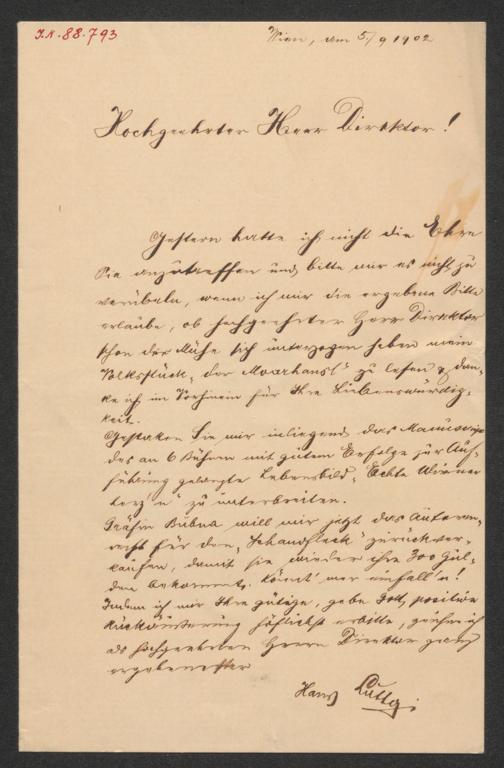 I.N. 88.793
Wien, am 5/9 1902
Hochgeehrter Herr Direktor!
Gestern hatte ich nicht die Ehre
Sie anzutreffen und bitte mir es nicht zu
verübeln, wenn ich mir die ergebene Bitte
erlaube, ob hochgeehrter Herr Direktor
schon der Mühe sich unterzogen haben mein
Volksstück „der Moorhansl" zu lesen & dan-
ke ich im Vorhinein für Ihre Liebenswürdig-
keit.
Gestatten Sie mir inliegend das Manuscript
des an 6 Bühnen mit gutem Erfolge zur Auf-
führung gelangte Lebensbild „Echte Wiener
Herz'n" zu unterbreiten.
Gräfin Bubna will mir jetzt das Autoren-
recht für den „Schandfleck" zurückver-
kaufen, damit sie wieder ihre 300 Gul-
den bekommt. Könnt' mer einfall'n!
Indem ich mir Ihre gütige, gebe Gott, positive
Rückäußerung höflichst erbitte, zeichne ich
als hochgeehrten Herrn Direktor ganz
ergebenster
Hans Luttg